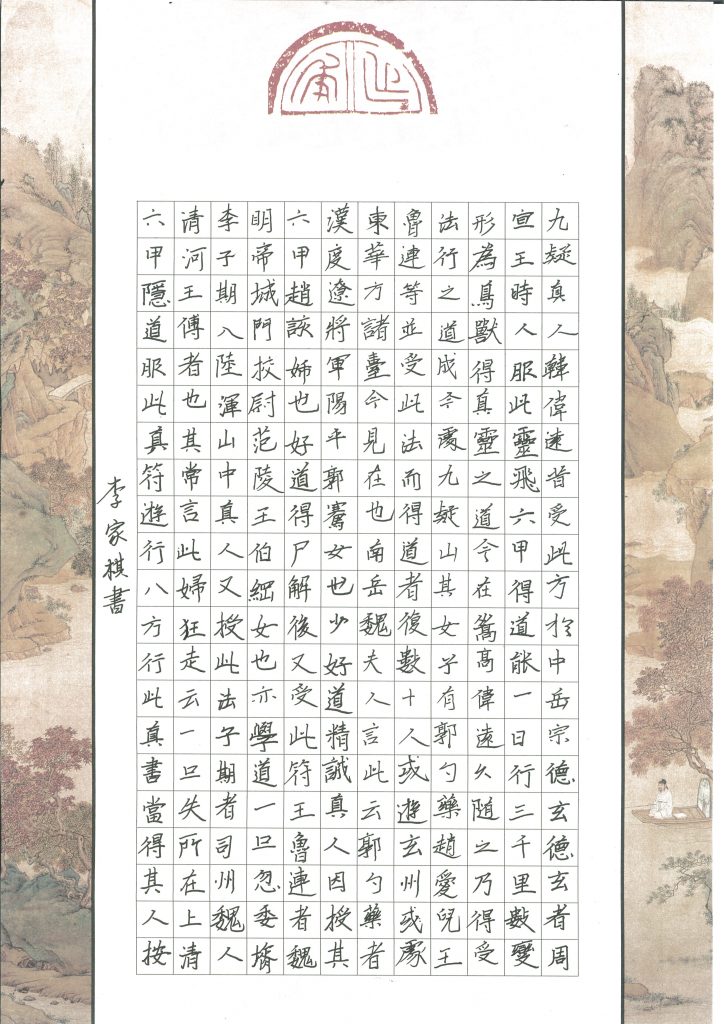 九疑真人韓偉遠昔受此方於中岳宗德玄德玄者周
宣王時人服此靈飛六甲得道能一日行三千里數變
形為鳥獸得真靈之道今在嵩高偉遠久隨之乃得受
法行之道成今處九疑山其女子有郭勺藥趙愛兒王
魯連等並受此法而得道者復數十人或遊玄州或處
東華方諸臺今見在也南岳魏夫人言此云郭勺藥者
漢度遼將軍陽平郭騫女也少好道精誠真人因授其
六甲趙該姊也好道得尸解後又受此符王魯連者魏
明帝城門挍尉范陵王伯綱女也亦學道一旦忽委壻
李子期入陸渾山中真人又授此法子期者司州魏人
清河王傳者也其常言此婦狂走云一旦失所在上清
六甲隱道服此真符遊行八方行此真書當得其人按
李家棋書